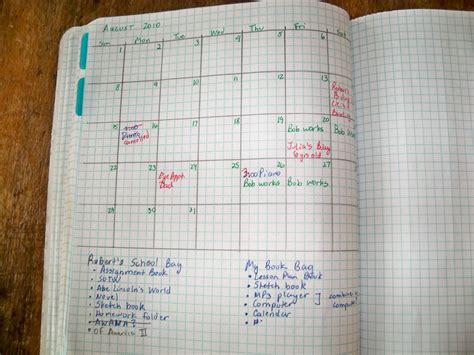 August 2010
Sun Mon Tue Wed Thu Fri Sat
1 2 3 4 5 6
8 9 10 11 12 13
Robert's
15 16 17 18 19 20
cancelled
Bob works Bob works
Julia's Bday
22 23 24 25 26 27
Eye Appt 3:00 Piano
Bob works Bob works
28 29 30 31
Robert's School Bag
• Assignment Book
• SOTW
• Abe Lincoln's World
• Novel
• Sketch book
• Homework folder
• AWANA?
• Of America II
My Book Bag
• Lesson Plan Book
• Sketch book
• MP3 player
• Computer
• Calendar
combine
computer